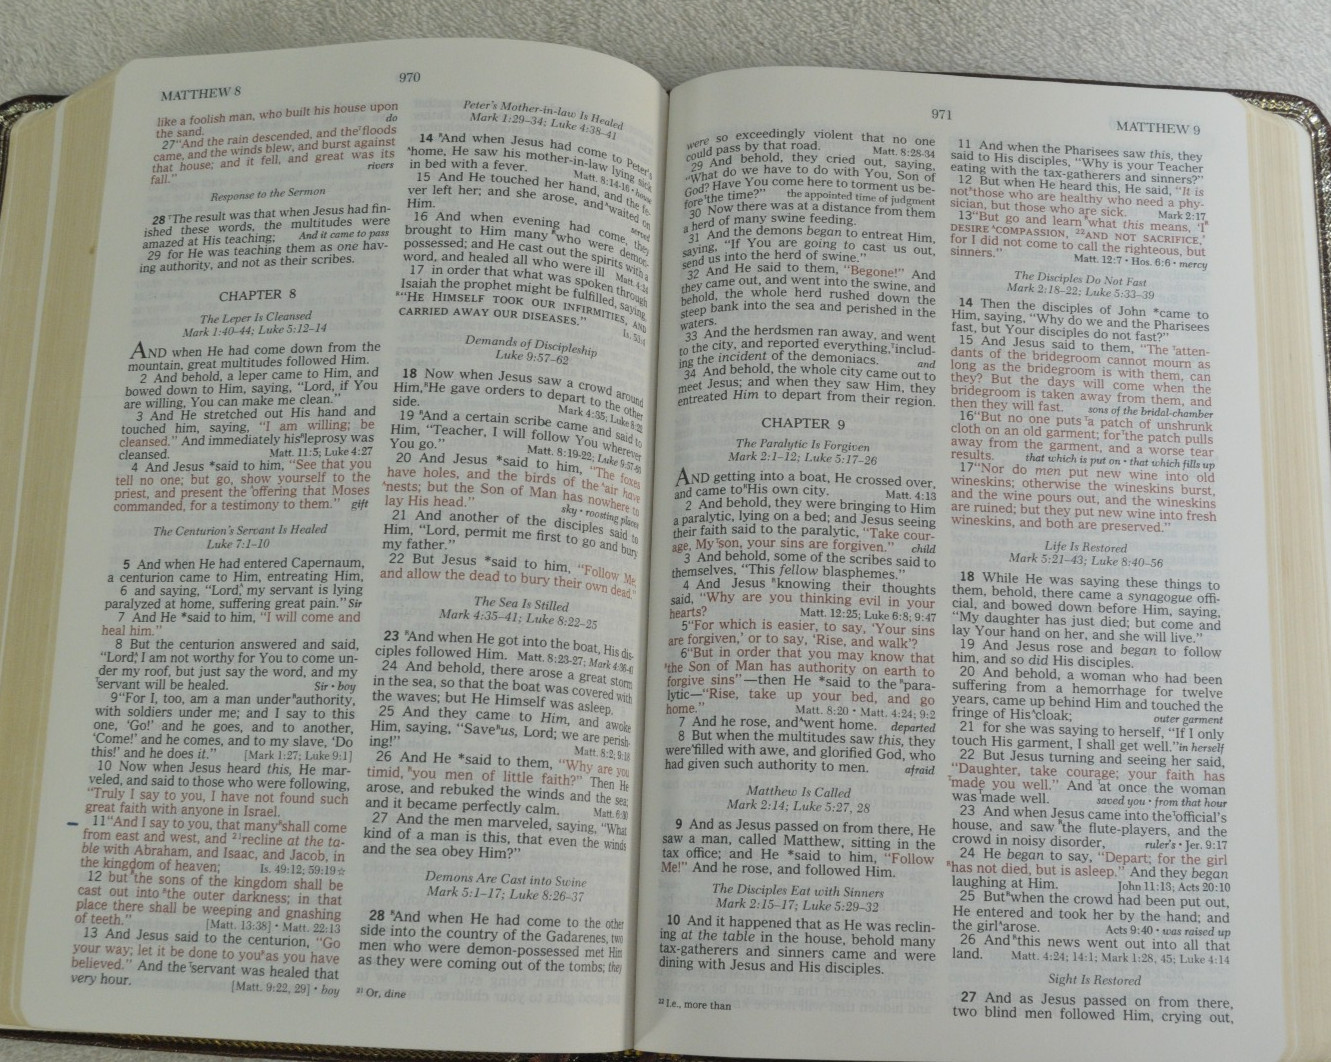 MATTHEW 8
970
like a foolish man, who built his house upon
the sand. do
27“And the rain descended, and the ʳfloods
came, and the winds blew, and burst against
that house; and it fell, and great was its
fall.” rivers
Response to the Sermon
28 ᵗThe result was that when Jesus had fin-
ished these words, the multitudes were
amazed at His teaching; And it came to pass
29 for He was teaching them as one hav-
ing authority, and not as their scribes.
CHAPTER 8
The Leper Is Cleansed
Mark 1:40–44; Luke 5:12–14
AND when He had come down from the
mountain, great multitudes followed Him.
2 And behold, a leper came to Him, and
bowed down to Him, saying, “Lord, if You
are willing, You can make me clean.”
3 And He stretched out His hand and
touched him, saying, “I am willing; be
cleansed.” And immediately his ᴿleprosy was
cleansed. Matt. 11:5; Luke 4:27
4 And Jesus *said to him, “See that you
tell no one; but go, show yourself to the
priest, and present the ᵗoffering that Moses
commanded, for a testimony to them.” gift
The Centurion’s Servant Is Healed
Luke 7:1–10
5 And when He had entered Capernaum,
a centurion came to Him, entreating Him,
6 and saying, “Lord,ᵗ my servant is lying
paralyzed at home, suffering great pain.” Sir
7 And He *said to him, “I will come and
heal him.”
8 But the centurion answered and said,
“Lord,ᵗ I am not worthy for You to come un-
der my roof, but just say the word, and my
ᵗservant will be healed. Sir · boy
9“For I, too, am a man under ᴿauthority,
with soldiers under me; and I say to this
one, ‘Go!’ and he goes, and to another,
‘Come!’ and he comes, and to my slave, ‘Do
this!’ and he does it.” [Mark 1:27; Luke 9:1]
10 Now when Jesus heard this, He mar-
veled, and said to those who were following,
“Truly I say to you, I have not found such
great faith with anyone in Israel.
11“And I say to you, that many ᴿshall come
from east and west, and ²¹recline at the ta-
ble with Abraham, and Isaac, and Jacob, in
the kingdom of heaven; Is. 49:12; 59:19☆
12 but ᴿthe sons of the kingdom shall be
cast out into ᴿthe outer darkness; in that
place there shall be weeping and gnashing
of teeth.” [Matt. 13:38] · Matt. 22:13
13 And Jesus said to the centurion, “Go
your way; let it be done to you ᴿas you have
believed.” And the ᵗservant was healed that
very hour. [Matt. 9:22, 29] · boy
Peter’s Mother-in-law Is Healed
Mark 1:29–34; Luke 4:38–41
14 ᴿAnd when Jesus had come to Peter’s
ᵗhome, He saw his mother-in-law lying sick
in bed with a fever. Matt. 8:14-16 · house
15 And He touched her hand, and the fe-
ver left her; and she arose, and ᴬwaited on
Him. served
16 And when evening had come, they
brought to Him many ᴿwho were demon-
possessed; and He cast out the spirits with a
word, and healed all who were ill Matt. 4:24
17 in order that what was spoken through
Isaiah the prophet might be fulfilled, saying,
ᴿ“HE HIMSELF TOOK OUR INFIRMITIES, AND
CARRIED AWAY OUR DISEASES.” Is. 53:4
Demands of Discipleship
Luke 9:57–62
18 Now when Jesus saw a crowd around
Him, ᴿHe gave orders to depart to the other
side. Mark 4:35; Luke 8:22
19 ᴿAnd a certain scribe came and said to
Him, “Teacher, I will follow You wherever
You go.” Matt. 8:19-22; Luke 9:57-60
20 And Jesus *said to him, “The foxes
have holes, and the birds of the ᵗair have
ᵗnests; but the Son of Man has nowhere to
lay His head.” sky · roosting places
21 And another of the disciples said to
Him, “Lord, permit me first to go and bury
my father.”
22 But Jesus *said to him, “Follow Me;
and allow the dead to bury their own dead.”
The Sea Is Stilled
Mark 4:35–41; Luke 8:22–25
23 ᴿAnd when He got into the boat, His dis-
ciples followed Him. Matt. 8:23-27; Mark 4:36-41
24 And behold, there arose a great storm
in the sea, so that the boat was covered with
the waves; but He Himself was asleep.
25 And they came to Him, and awoke
Him, saying, “Save ᴿus, Lord; we are perish-
ing!” Matt. 8:2; 9:18
26 And He *said to them, “Why are you
timid, ᴿyou men of little faith?” Then He
arose, and rebuked the winds and the sea;
and it became perfectly calm. Matt. 6:30
27 And the men marveled, saying, “What
kind of a man is this, that even the winds
and the sea obey Him?”
Demons Are Cast into Swine
Mark 5:1–17; Luke 8:26–37
28 ᴿAnd when He had come to the other
side into the country of the Gadarenes, two
men who were demon-possessed met Him
as they were coming out of the tombs; they
²¹ Or, dine
971
MATTHEW 9
were so exceedingly violent that no one
could pass by that road. Matt. 8:28-34
29 And behold, they cried out, saying,
“What do we have to do with You, Son of
God? Have You come here to torment us be-
fore ᵗthe time?” the appointed time of judgment
30 Now there was at a distance from them
a herd of many swine feeding.
31 And the demons began to entreat Him,
saying, “If You are going to cast us out,
send us into the herd of swine.”
32 And He said to them, “Begone!” And
they came out, and went into the swine, and
behold, the whole herd rushed down the
steep bank into the sea and perished in the
waters.
33 And the herdsmen ran away, and went
to the city, and reported everything, ᵗinclud-
ing the incident of the demoniacs. and
34 And behold, the whole city came out to
meet Jesus; and when they saw Him, they
entreated Him to depart from their region.
CHAPTER 9
The Paralytic Is Forgiven
Mark 2:1–12; Luke 5:17–26
AND getting into a boat, He crossed over,
and came to ᴿHis own city. Matt. 4:13
2 And behold, they were bringing to Him
a paralytic, lying on a bed; and Jesus seeing
their faith said to the paralytic, “Take cour-
age, My ᵗson, your sins are forgiven.” child
3 And behold, some of the scribes said to
themselves, “This fellow blasphemes.”
4 And Jesus ᴿknowing their thoughts
said, “Why are you thinking evil in your
hearts? Matt. 12:25; Luke 6:8; 9:47
5“For which is easier, to say, ‘Your sins
are forgiven,’ or to say, ‘Rise, and walk’?
6“But in order that you may know that
ᴿthe Son of Man has authority on earth to
forgive sins”—then He *said to the ᴿpara-
lytic—“Rise, take up your bed, and go
home.” Matt. 8:20 · Matt. 4:24; 9:2
7 And he rose, and ᴬwent home. departed
8 But when the multitudes saw this, they
were ᵗfilled with awe, and glorified God, who
had given such authority to men. afraid
Matthew Is Called
Mark 2:14; Luke 5:27, 28
9 And as Jesus passed on from there, He
saw a man, called Matthew, sitting in the
tax office; and He *said to him, “Follow
Me!” And he rose, and followed Him.
The Disciples Eat with Sinners
Mark 2:15–17; Luke 5:29–32
10 And it happened that as He was reclin-
ing at the table in the house, behold many
tax-gatherers and sinners came and were
dining with Jesus and His disciples.
²² I.e., more than
11 And when the Pharisees saw this, they
said to His disciples, “Why is your Teacher
eating with the tax-gatherers and sinners?”
12 But when He heard this, He said, “It is
not ᴿthose who are healthy who need a phy-
sician, but those who are sick. Mark 2:17
13“But go and learn ᴿwhat this means, ‘I ᴿ
DESIRE ᵗCOMPASSION, ²²AND NOT SACRIFICE,’
for I did not come to call the righteous, but
sinners.” Matt. 12:7 · Hos. 6:6 · mercy
The Disciples Do Not Fast
Mark 2:18–22; Luke 5:33–39
14 Then the disciples of John *came to
Him, saying, “Why do we and the Pharisees
fast, but Your disciples do not fast?”
15 And Jesus said to them, “The ᵗatten-
dants of the bridegroom cannot mourn as
long as the bridegroom is with them, can
they? But the days will come when the
bridegroom is taken away from them, and
then they will fast. sons of the bridal-chamber
16“But no one puts ᵗa patch of unshrunk
cloth on an old garment; for ᵗthe patch pulls
away from the garment, and a worse tear
results. that which is put on · that which fills up
17“Nor do men put new wine into old
wineskins; otherwise the wineskins burst,
and the wine pours out, and the wineskins
are ruined; but they put new wine into fresh
wineskins, and both are preserved.”
Life Is Restored
Mark 5:21–43; Luke 8:40–56
18 While He was saying these things to
them, behold, there came a synagogue offi-
cial, and bowed down before Him, saying,
“My daughter has just died; but come and
lay Your hand on her, and she will live.”
19 And Jesus rose and began to follow
him, and so did His disciples.
20 And behold, a woman who had been
suffering from a hemorrhage for twelve
years, came up behind Him and touched the
fringe of His ᵗcloak; outer garment
21 for she was saying to herself, “If I only
touch His garment, I shall get well.” in herself
22 But Jesus turning and seeing her said,
“Daughter, take courage; your faith has
ᵗmade you well.” And ᵗat once the woman
was ᵗmade well. saved you · from that hour
23 And when Jesus came into the ᵗofficial’s
house, and saw ᴿthe flute-players, and the
crowd in noisy disorder, ruler’s · Jer. 9:17
24 He began to say, “Depart; for the girl
ᴿhas not died, but is asleep.” And they began
laughing at Him. John 11:13; Acts 20:10
25 But ᴿwhen the crowd had been put out,
He entered and took her by the hand; and
the girl ᴬarose. Acts 9:40 · was raised up
26 And ᴿthis news went out into all that
land. Matt. 4:24; 14:1; Mark 1:28, 45; Luke 4:14
Sight Is Restored
27 And as Jesus passed on from there,
two blind men followed Him, crying out,